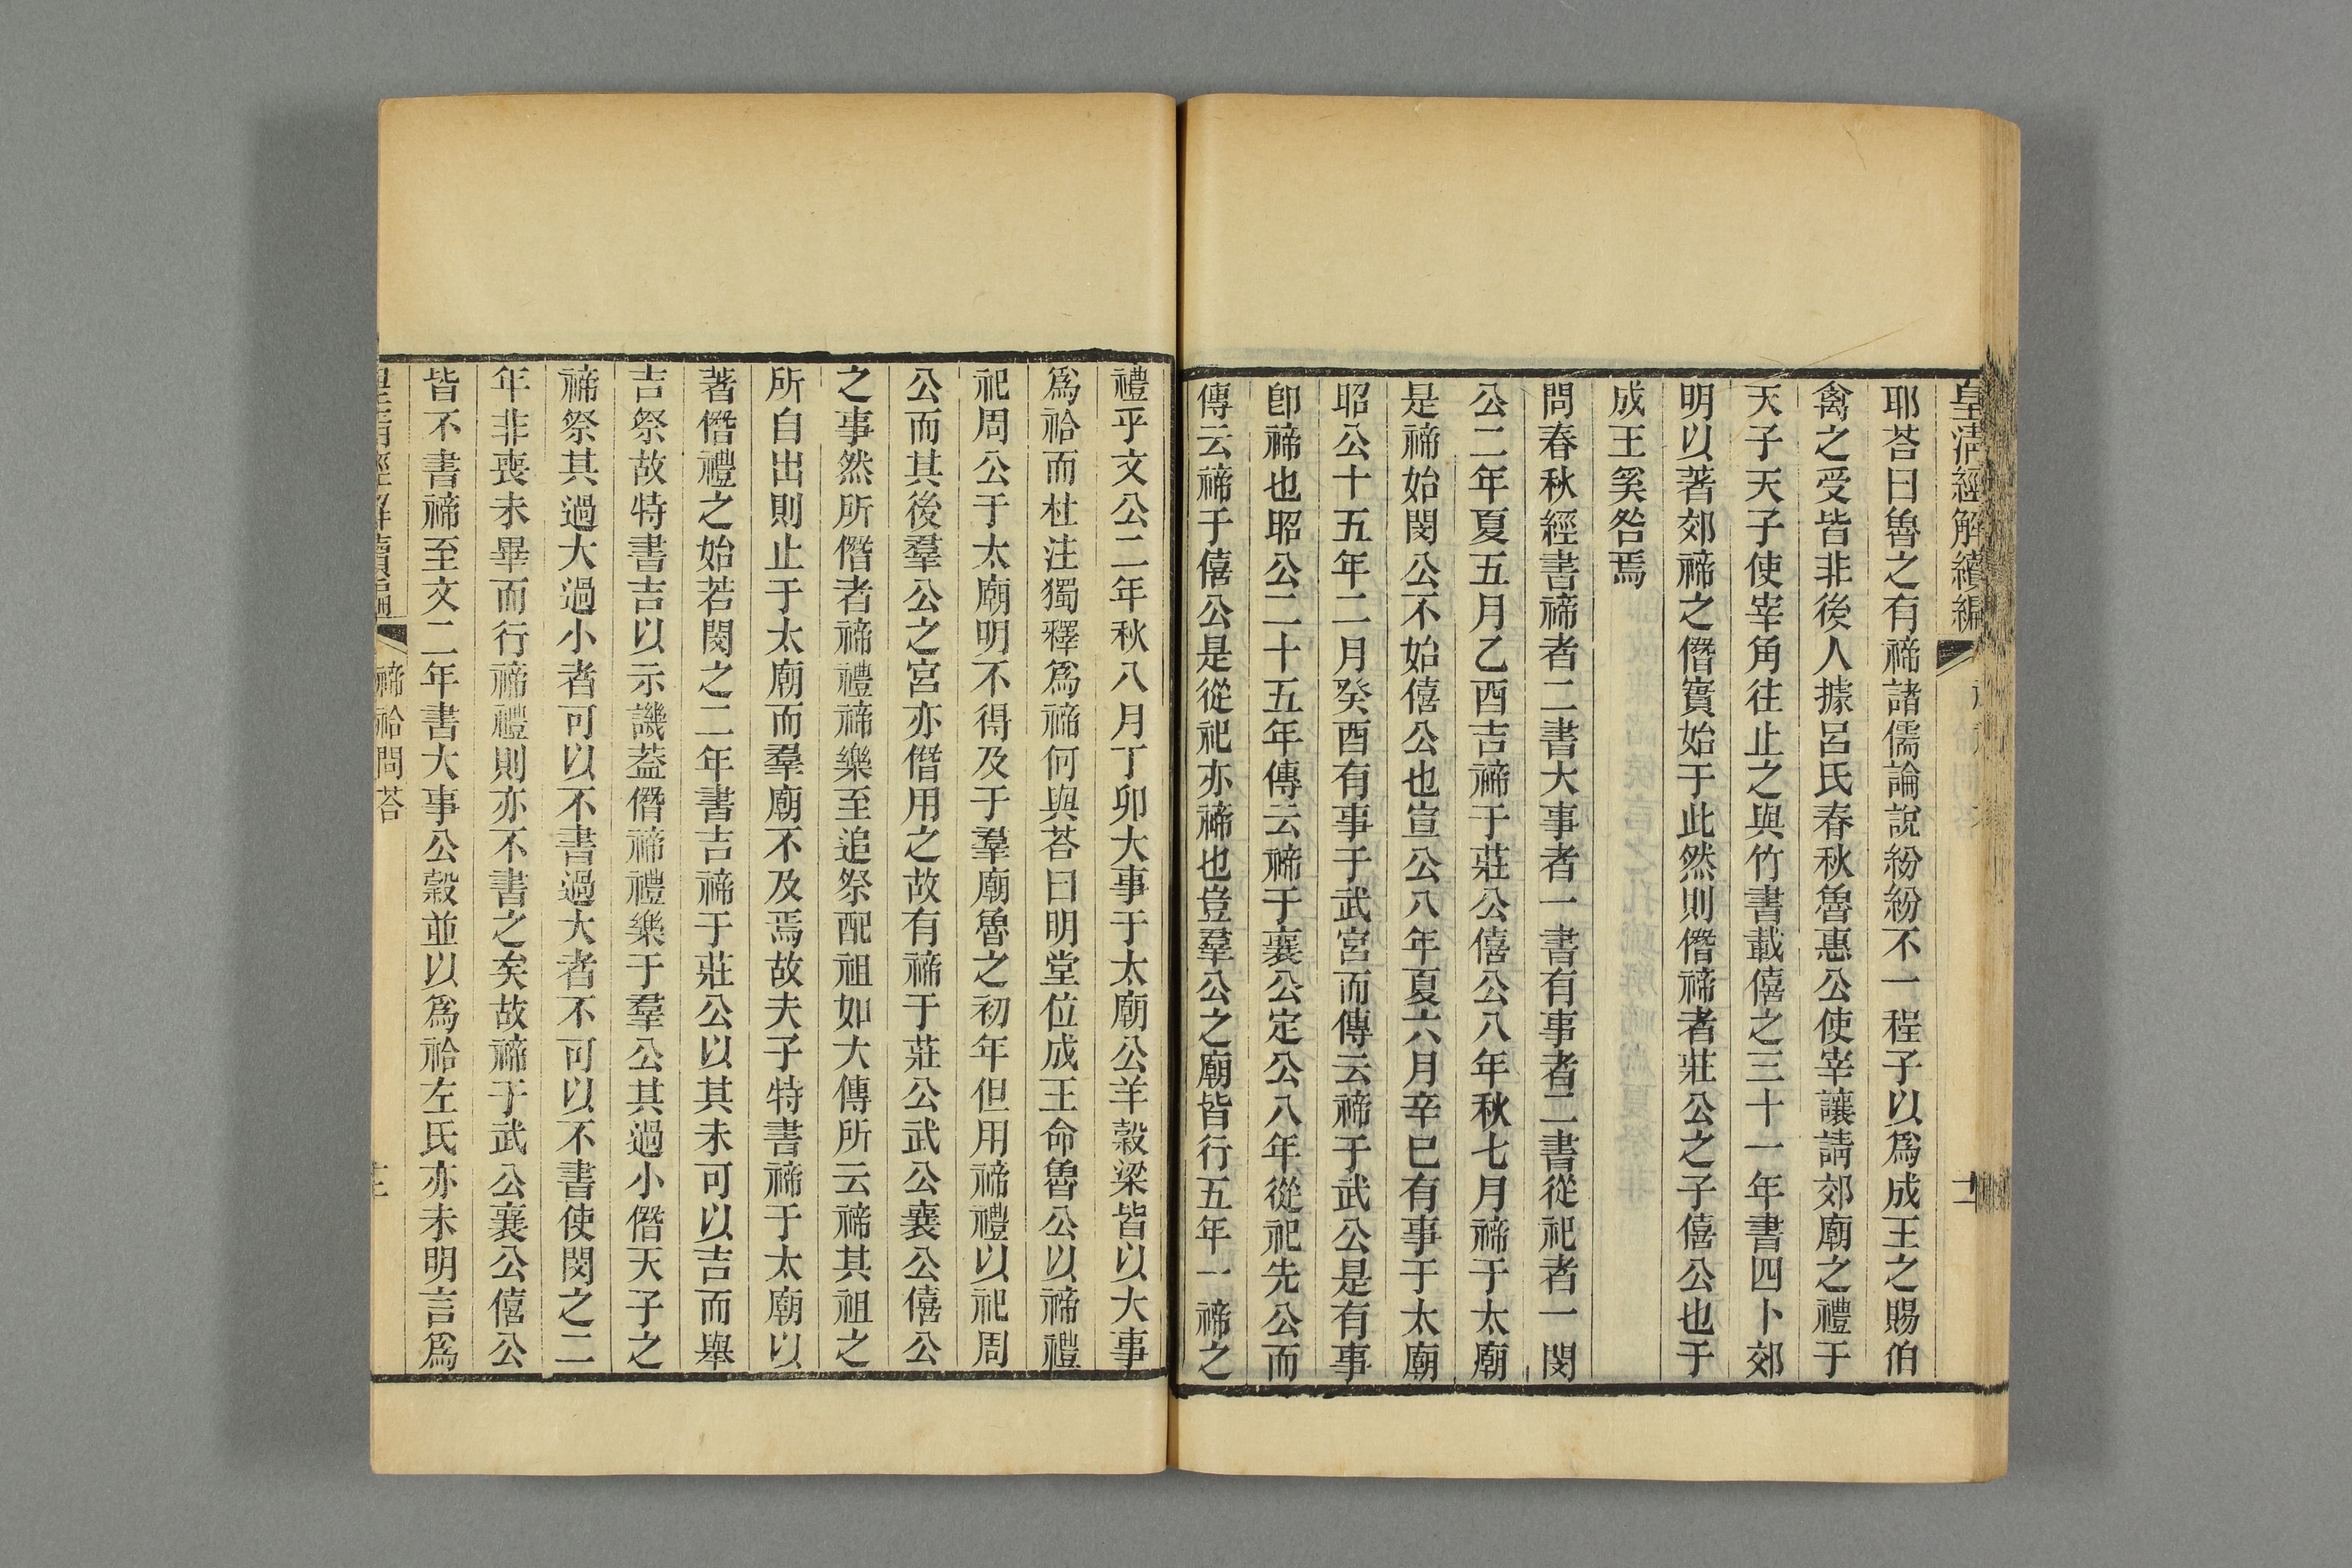 皇清經解續編
耶荅曰魯之有禘諸儒論說紛紛不一程子以爲成王之賜伯
禽之受皆非後人據呂氏春秋魯惠公使宰讓請郊廟之禮于
天子天子使宰角往止之與竹書載僖之三十一年書四卜郊
明以著郊禘之僭實始于此然則僭禘者莊公之子僖公也于
成王奚咎焉
問春秋經書禘者二書大事者一書有事者二書從祀者一閔
公二年夏五月乙酉吉禘于莊公僖公八年秋七月禘于太廟
是禘始閔公不始僖公也宣公八年夏六月辛巳有事于太廟
昭公十五年二月癸酉有事于武宮而傳云禘于武公是有事
卽禘也昭公二十五年傳云禘于襄公定公八年從祀先公而
傳云禘于僖公是從祀亦禘也豈羣公之廟皆行五年一禘之
禮乎文公二年秋八月丁卯大事于太廟公羊榖梁皆以大事
爲祫而杜注獨釋爲禘何與荅曰明堂位成王命魯公以禘禮
祀周公于太廟明不得及于羣廟魯之初年但用禘禮以祀周
公而其後羣公之宮亦僭用之故有禘于莊公武公襄公僖公
之事然所僭者禘禮禘樂至追祭配祖如大傳所云禘其祖之
所自出則止于太廟而羣廟不及焉故夫子特書禘于太廟以
著僭禮之始若閔之二年書吉禘于莊公以其未可以吉而舉
吉祭故特書吉以示譏葢僭禘禮樂于羣公其過小僭天子之
禘祭其過大過小者可以不書過大者不可以不書使閔之二
年非喪未畢而行禘禮則亦不書之矣故禘于武公襄公僖公
皆不書禘至文二年書大事公榖並以爲祫左氏亦未明言爲
皇清經解續編
禘祫問荅